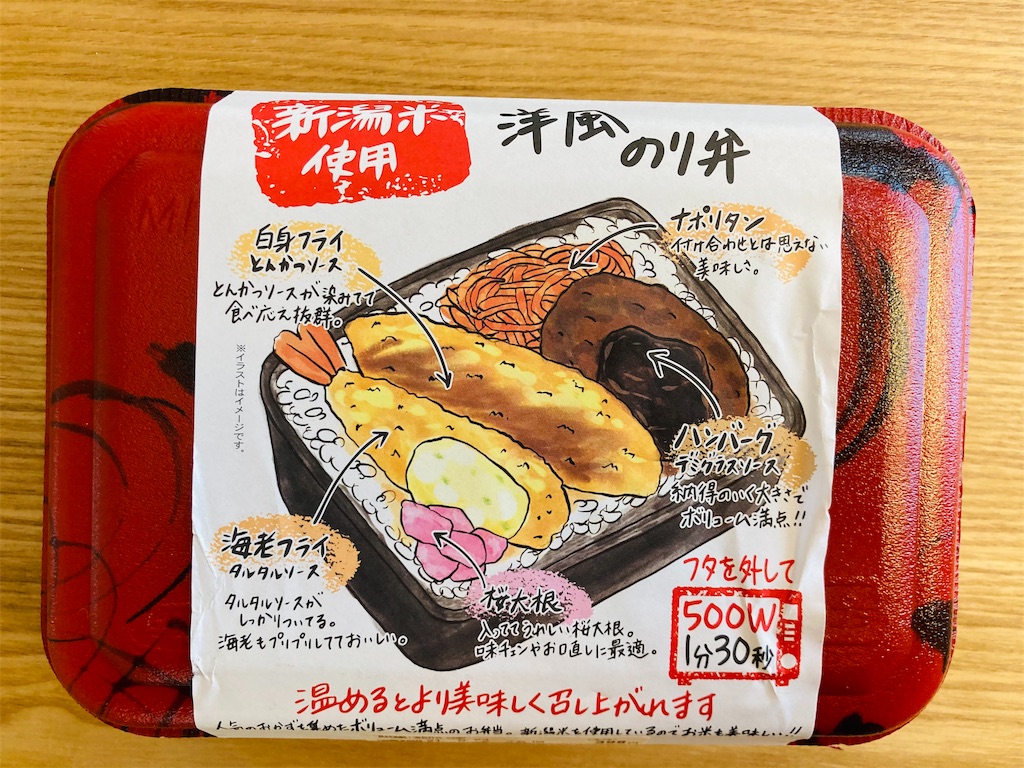 新潟米
使用
洋風
のり弁
白身フライ
とんかつソース
とんかつソースが染みてて
食べ応え抜群。
ナポリタン
付け合わせとは思えない
美味しさ。
※イラストはイメージです。
ハンバーグ
デミグラスソース
納得のいく大きさで
ボリューム満点!!
海老フライ
タルタルソース
タルタルソースが
しっかりついてる。
海老もプリプリしてておいしい。
桜大根
入っててうれしい桜大根。
味チェンやお口直しに最適。
フタを外して
500W
1分30秒
温めるとより美味しく召し上がれます
人気のおかずを集めたボリューム満点のお弁当。新潟米を使用しているのでお米も美味しい!!